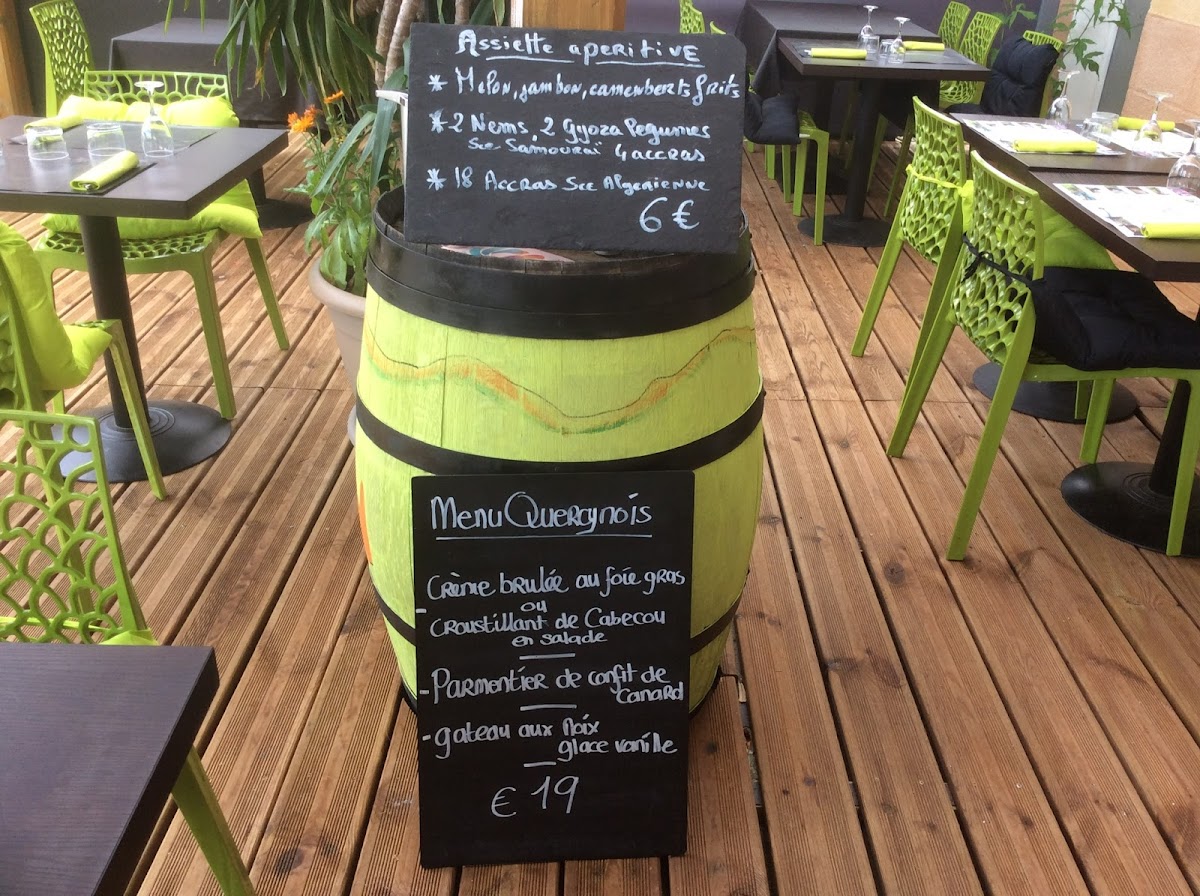 Assiette aperitive
* Melon, jambon, camemberts frits
* 2 Nems, 2 Gyoza legumes
Sce Samouraï 4 accras
* 18 Accras Sce Algerienne
6 €
Menu Quercynois
Crème brulée au foie gras
ou
- Croustillant de Cabecou
en salade
- Parmentier de confit de
canard
- gateau aux Noix
glace vanille
€ 19